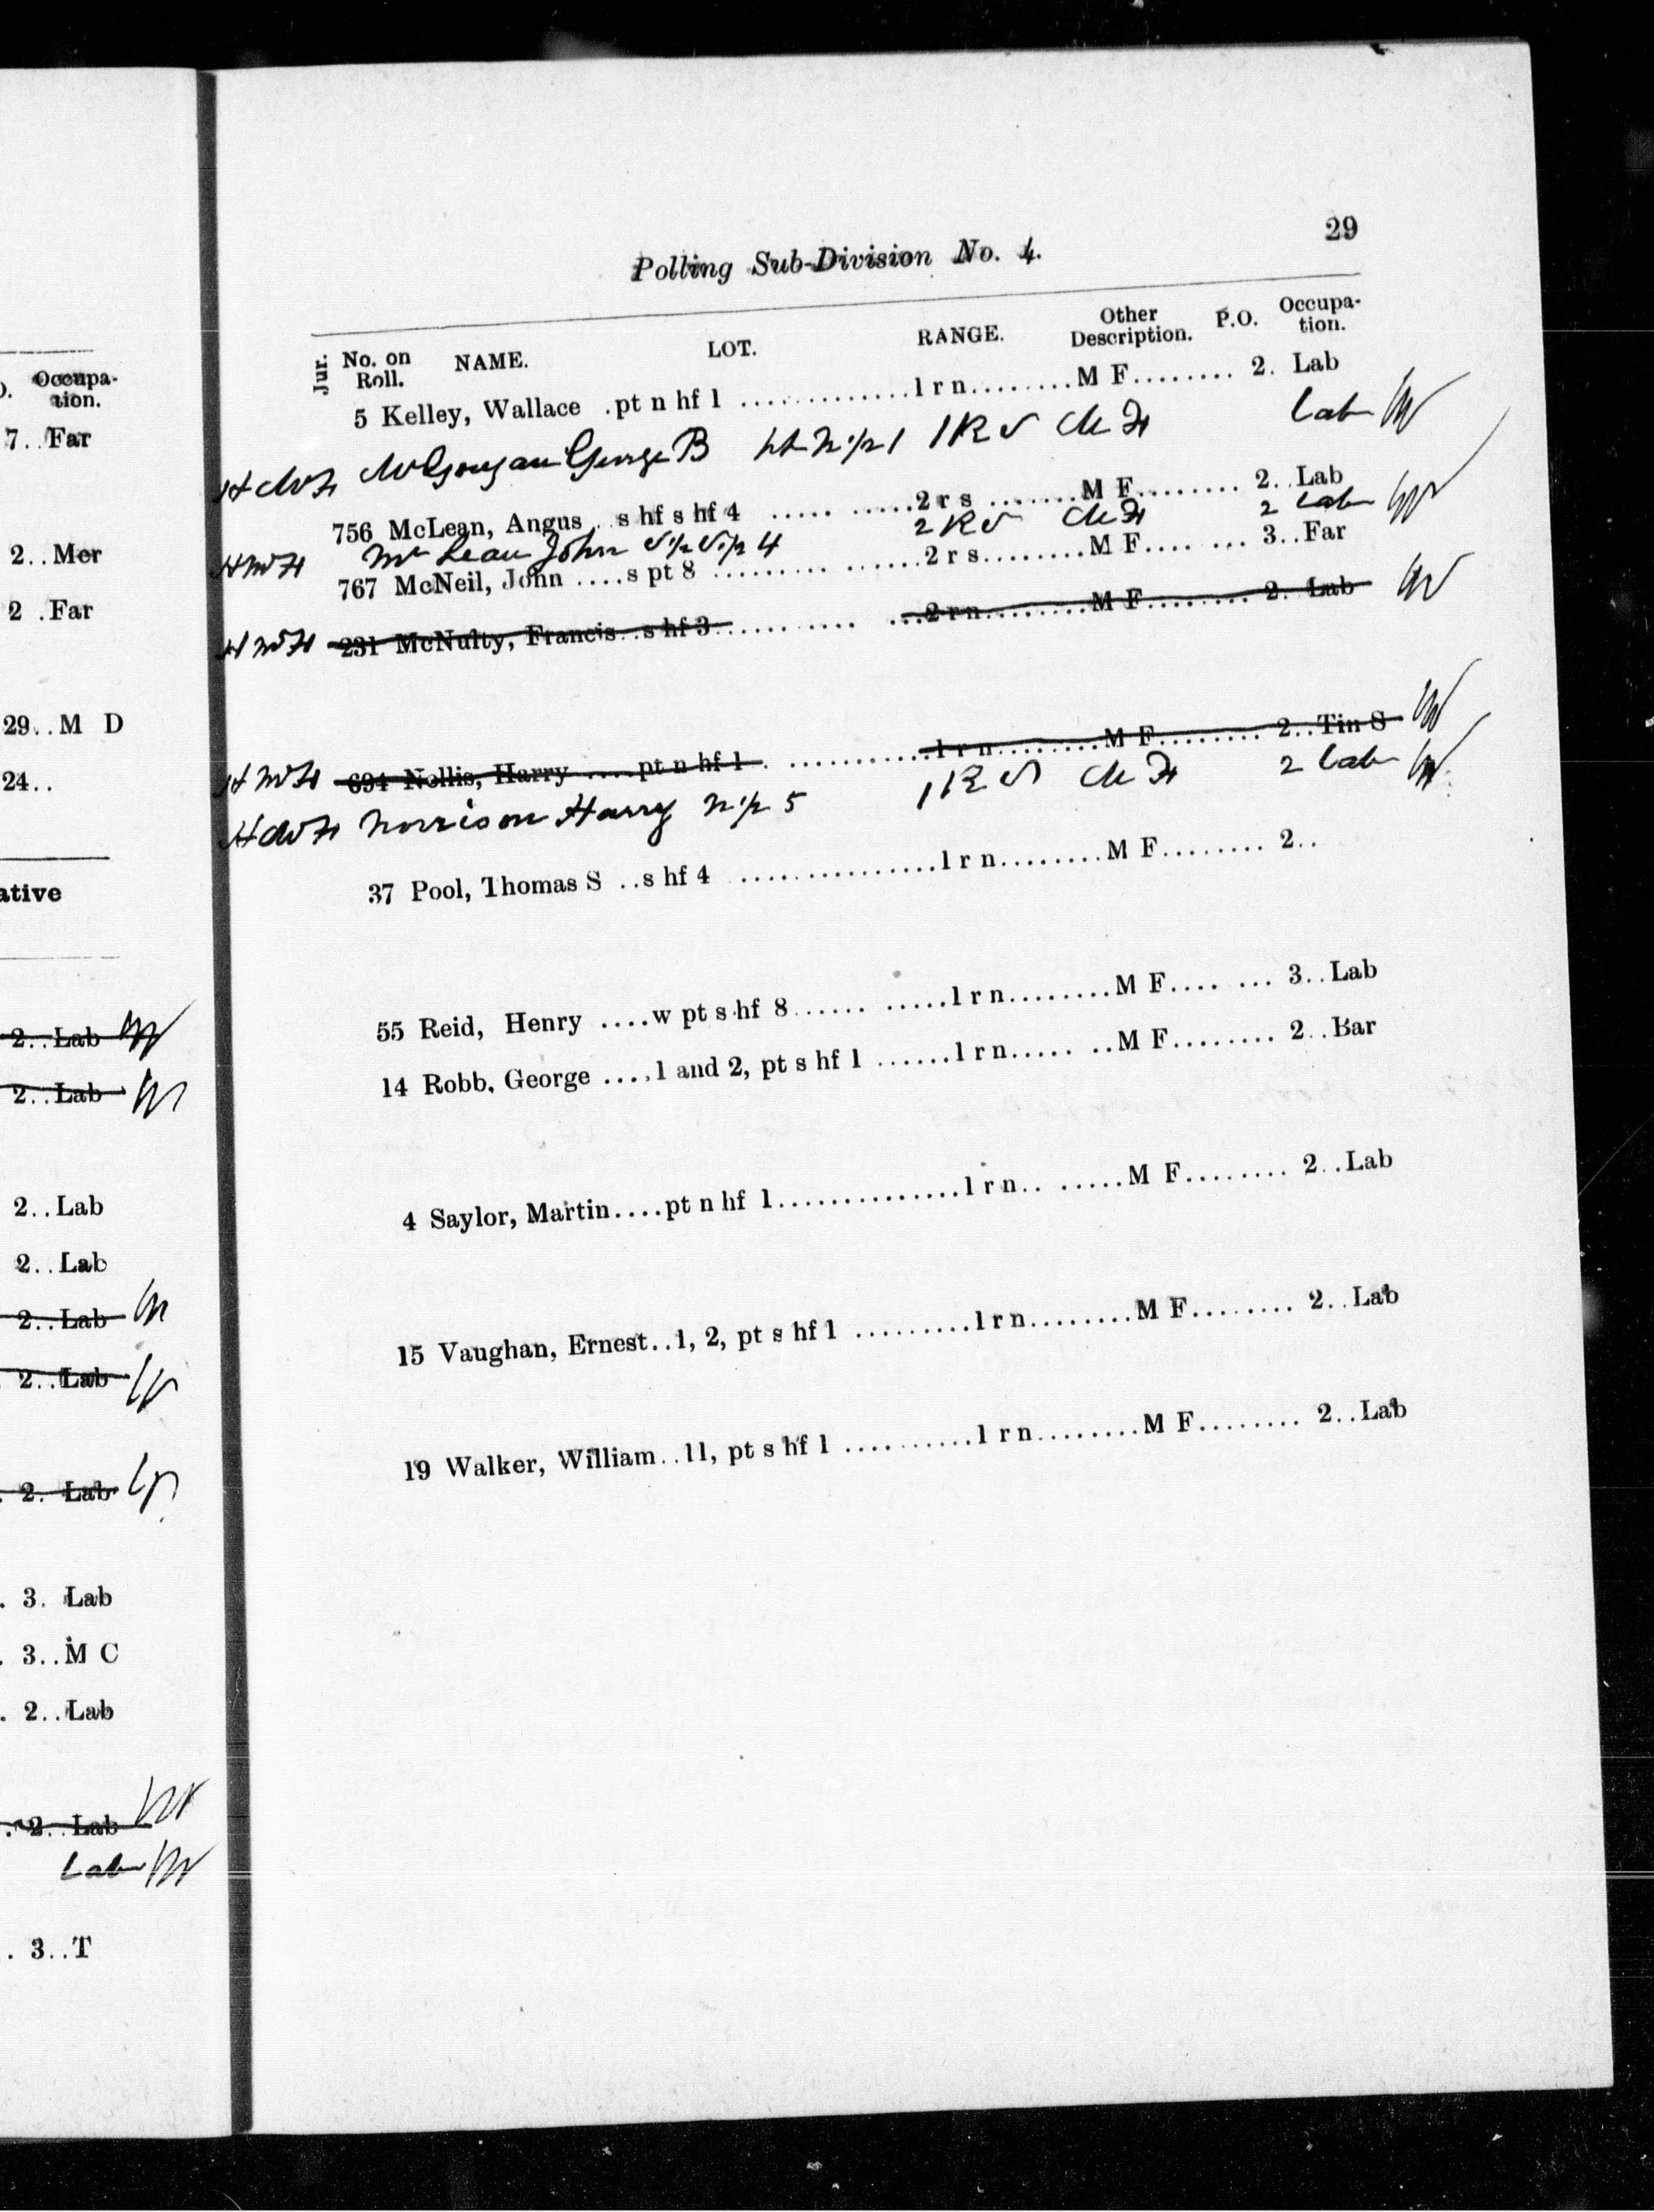 Occupa-
tion.
7..Far
2..Mer
2 .Far
29..M D
24..
ative
2..Lab
2..Lab
2..Lab
2..Lab
2..Lab
2..Lab
2. Lab
3. Lab
3..M C
2..Lab
2..Lab
Lab
3..T
29
Polling Sub-Division No. 4.
Jur. No. on Roll. NAME. LOT. RANGE. Other Description. P.O. Occupa-tion.
5 Kelley, Wallace .pt n hf 1 ..............1 r n........M F........ 2. Lab
George B pt n 1/2 1 1 R S M F Lab
756 McLean, Angus ..s hf s hf 4 ..... ......2 r s .......M F........ 2..Lab
McLean John S 1/2 S 1/2 4 2 R S M F 2 Lab
767 McNeil, John ....s pt 8 ......... ......2 r s........M F.... ... 3..Far
231 McNulty, Francis..s hf 3........... ...2 r n........M F........ 2. Lab
694 Nellis, Harry .....pt n hf 1 . ...........1 r n........M F........ 2..Tin S
Morrison Harry n 1/2 5 1 R S M F 2 Lab
37 Pool, Thomas S ..s hf 4 ...............1 r n........M F........ 2..
55 Reid, Henry ....w pt s hf 8...... .....1 r n........M F.... ... 3..Lab
14 Robb, George ....1 and 2, pt s hf 1 ......1 r n..... ..M F........ 2..Bar
4 Saylor, Martin....pt n hf 1..............1 r n.. .....M F........ 2..Lab
15 Vaughan, Ernest..1, 2, pt s hf 1 .........1 r n........M F........ 2..Lab
19 Walker, William..11, pt s hf 1 ..........1 r n........M F........ 2..Lab